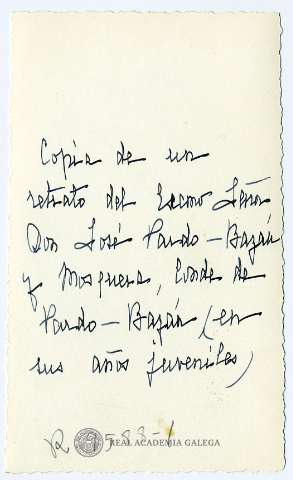 Copia de un
retrato del Excmo Señor
Don José Pardo-Bazán
y Mosquera, Conde de
Pardo-Bazán (en
sus años juveniles)
R 9588-1
REAL ACADEMIA GALEGA